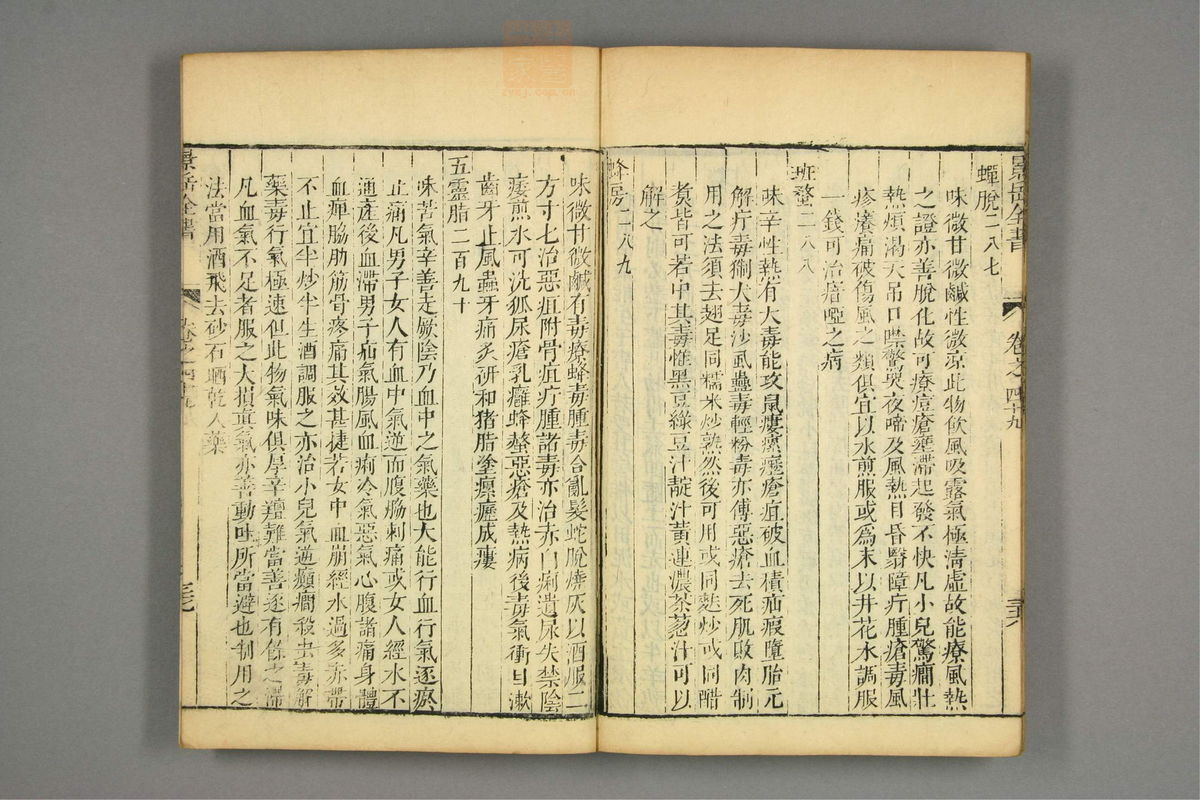 景岳全書
卷之四十九
蟬脫二八七
味微甘微鹹性微涼此物飲風吸露氣極清虛故能療風熱
之證亦善脫化故可療痘瘡壅滯起發不快凡小兒驚癎壯
熱煩渴天吊口噤驚哭夜啼及風熱目昏翳障疔腫瘡毒風
疹癢痛破傷風之類俱宜以水煎服或爲末以井花水調服
一錢可治瘖啞之病
班蝥二八八
味辛性熱有大毒能攻鼠瘻瘰癧瘡疽破血積疝瘕墮胎元
解疔毒猘犬毒沙虱蠱毒輕粉毒亦傅惡瘡去死肌敗肉制
用之法須去翅足同糯米炒熟然後可用或同麩炒或同醋
煑皆可若中其毒惟黑豆綠豆汁靛汁黃連濃茶葱汁可以
解之
蜂房二八九
味微甘微鹹有毒療蜂毒腫毒合亂髮蛇脫燒灰以酒服二
方寸七治惡疽附骨疽疔腫諸毒亦治赤白痢遺尿失禁陰
痿煎水可洗狐尿瘡乳癰蜂螫惡瘡及熱病後毒氣衝目漱
齒牙止風蟲牙痛炙研和猪脂塗瘰癧成瘻
五靈脂二百九十
味苦氣辛善走厥陰乃血中之氣藥也大能行血行氣逐瘀
止痛凡男子女人有血中氣逆而腹脇刺痛或女人經水不
通產後血滯男子疝氣腸風血痢冷氣惡氣心腹諸痛身體
血痺脇肋筋骨疼痛其效甚捷若女中血崩經水過多赤帶
不止宜半炒半生酒調服之亦治小兒氣逆癲癎殺虫毒解
藥毒行氣極速但此物氣味俱厚辛羶難當善逐有餘之滯
凡血氣不足者服之大損真氣亦善動吐所當避也制用之
法當用酒飛去砂石晒乾入藥
景岳全書
卷之四十九